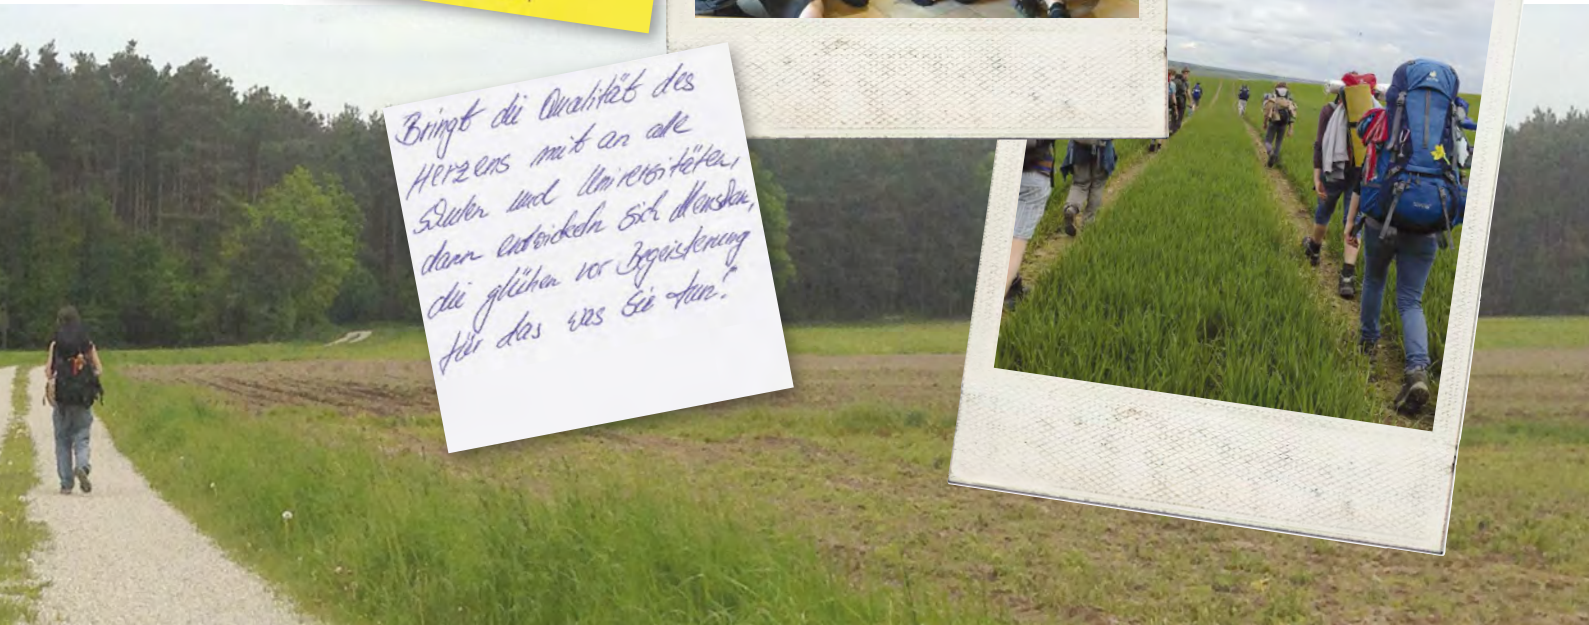 Bringt die Qualität des
Herzens mit an alle
Schulen und Universitäten,
dann entwickeln sich Menschen,
die glühen vor Begeisterung
für das was sie tun!